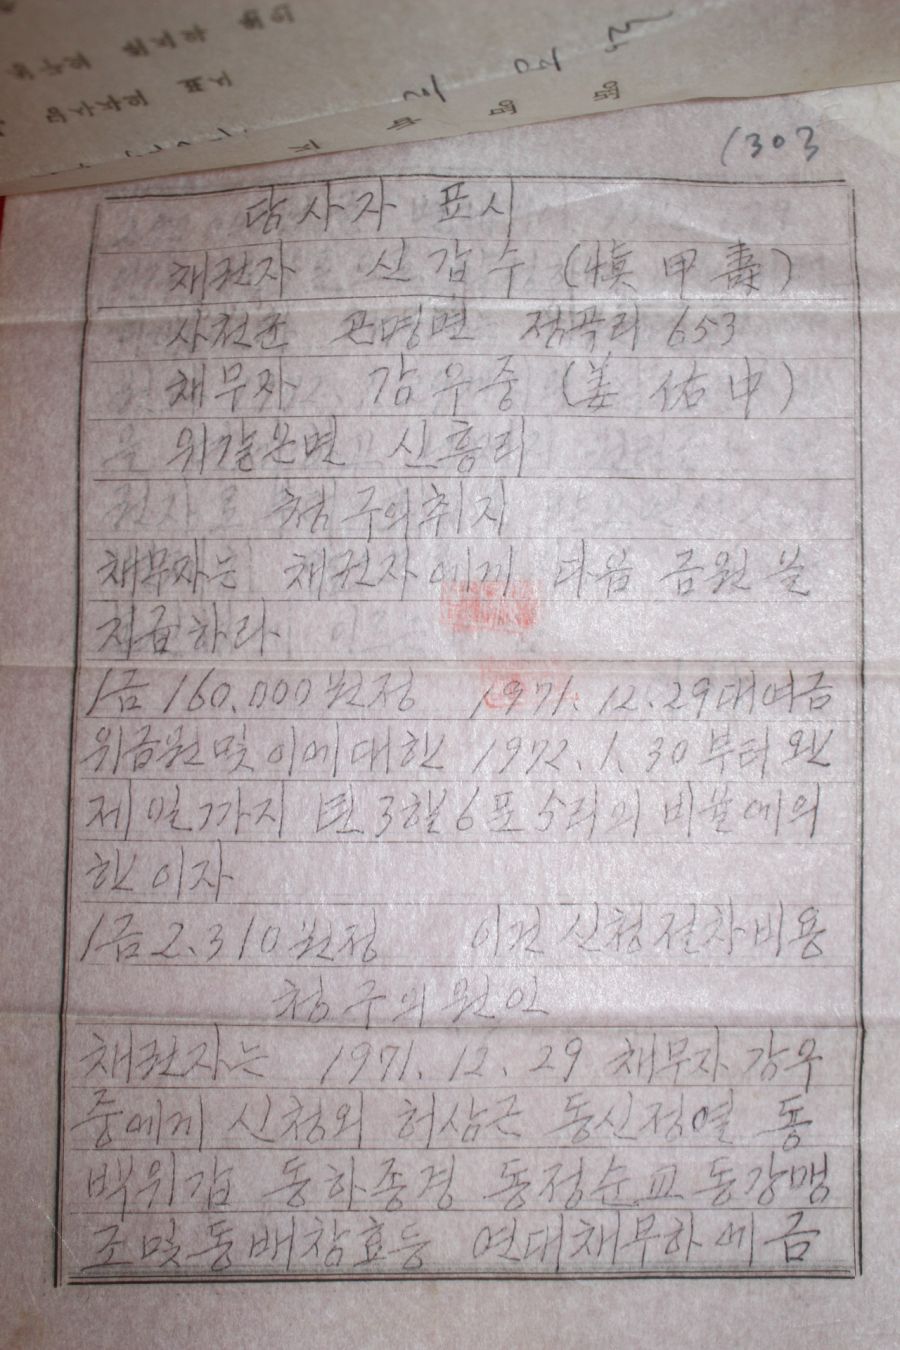 1303
당사자 표시
채권자 신갑수 (愼甲壽)
사천군 곤명면 정곡리 653
채무자 강우중 (姜佑中)
위같은면 신흥리
청구의취지
채무자는 채권자에게 다음 금원을
지급하라
1금 160,000원정 1971. 12. 29대여금
위금원및이에대한 1972. 1. 30부터 완
제일까지 년3할6푼5리의 비율에의
한이자
1금2.310원정 이건신청절차비용
청구의원인
채권자는 1971. 12. 29 채무자강우
중에게 신청외 허삼근 동신정열 동
박위갑 동하종경 동정순교동강맹
조및동배참효등 연대채무하에금